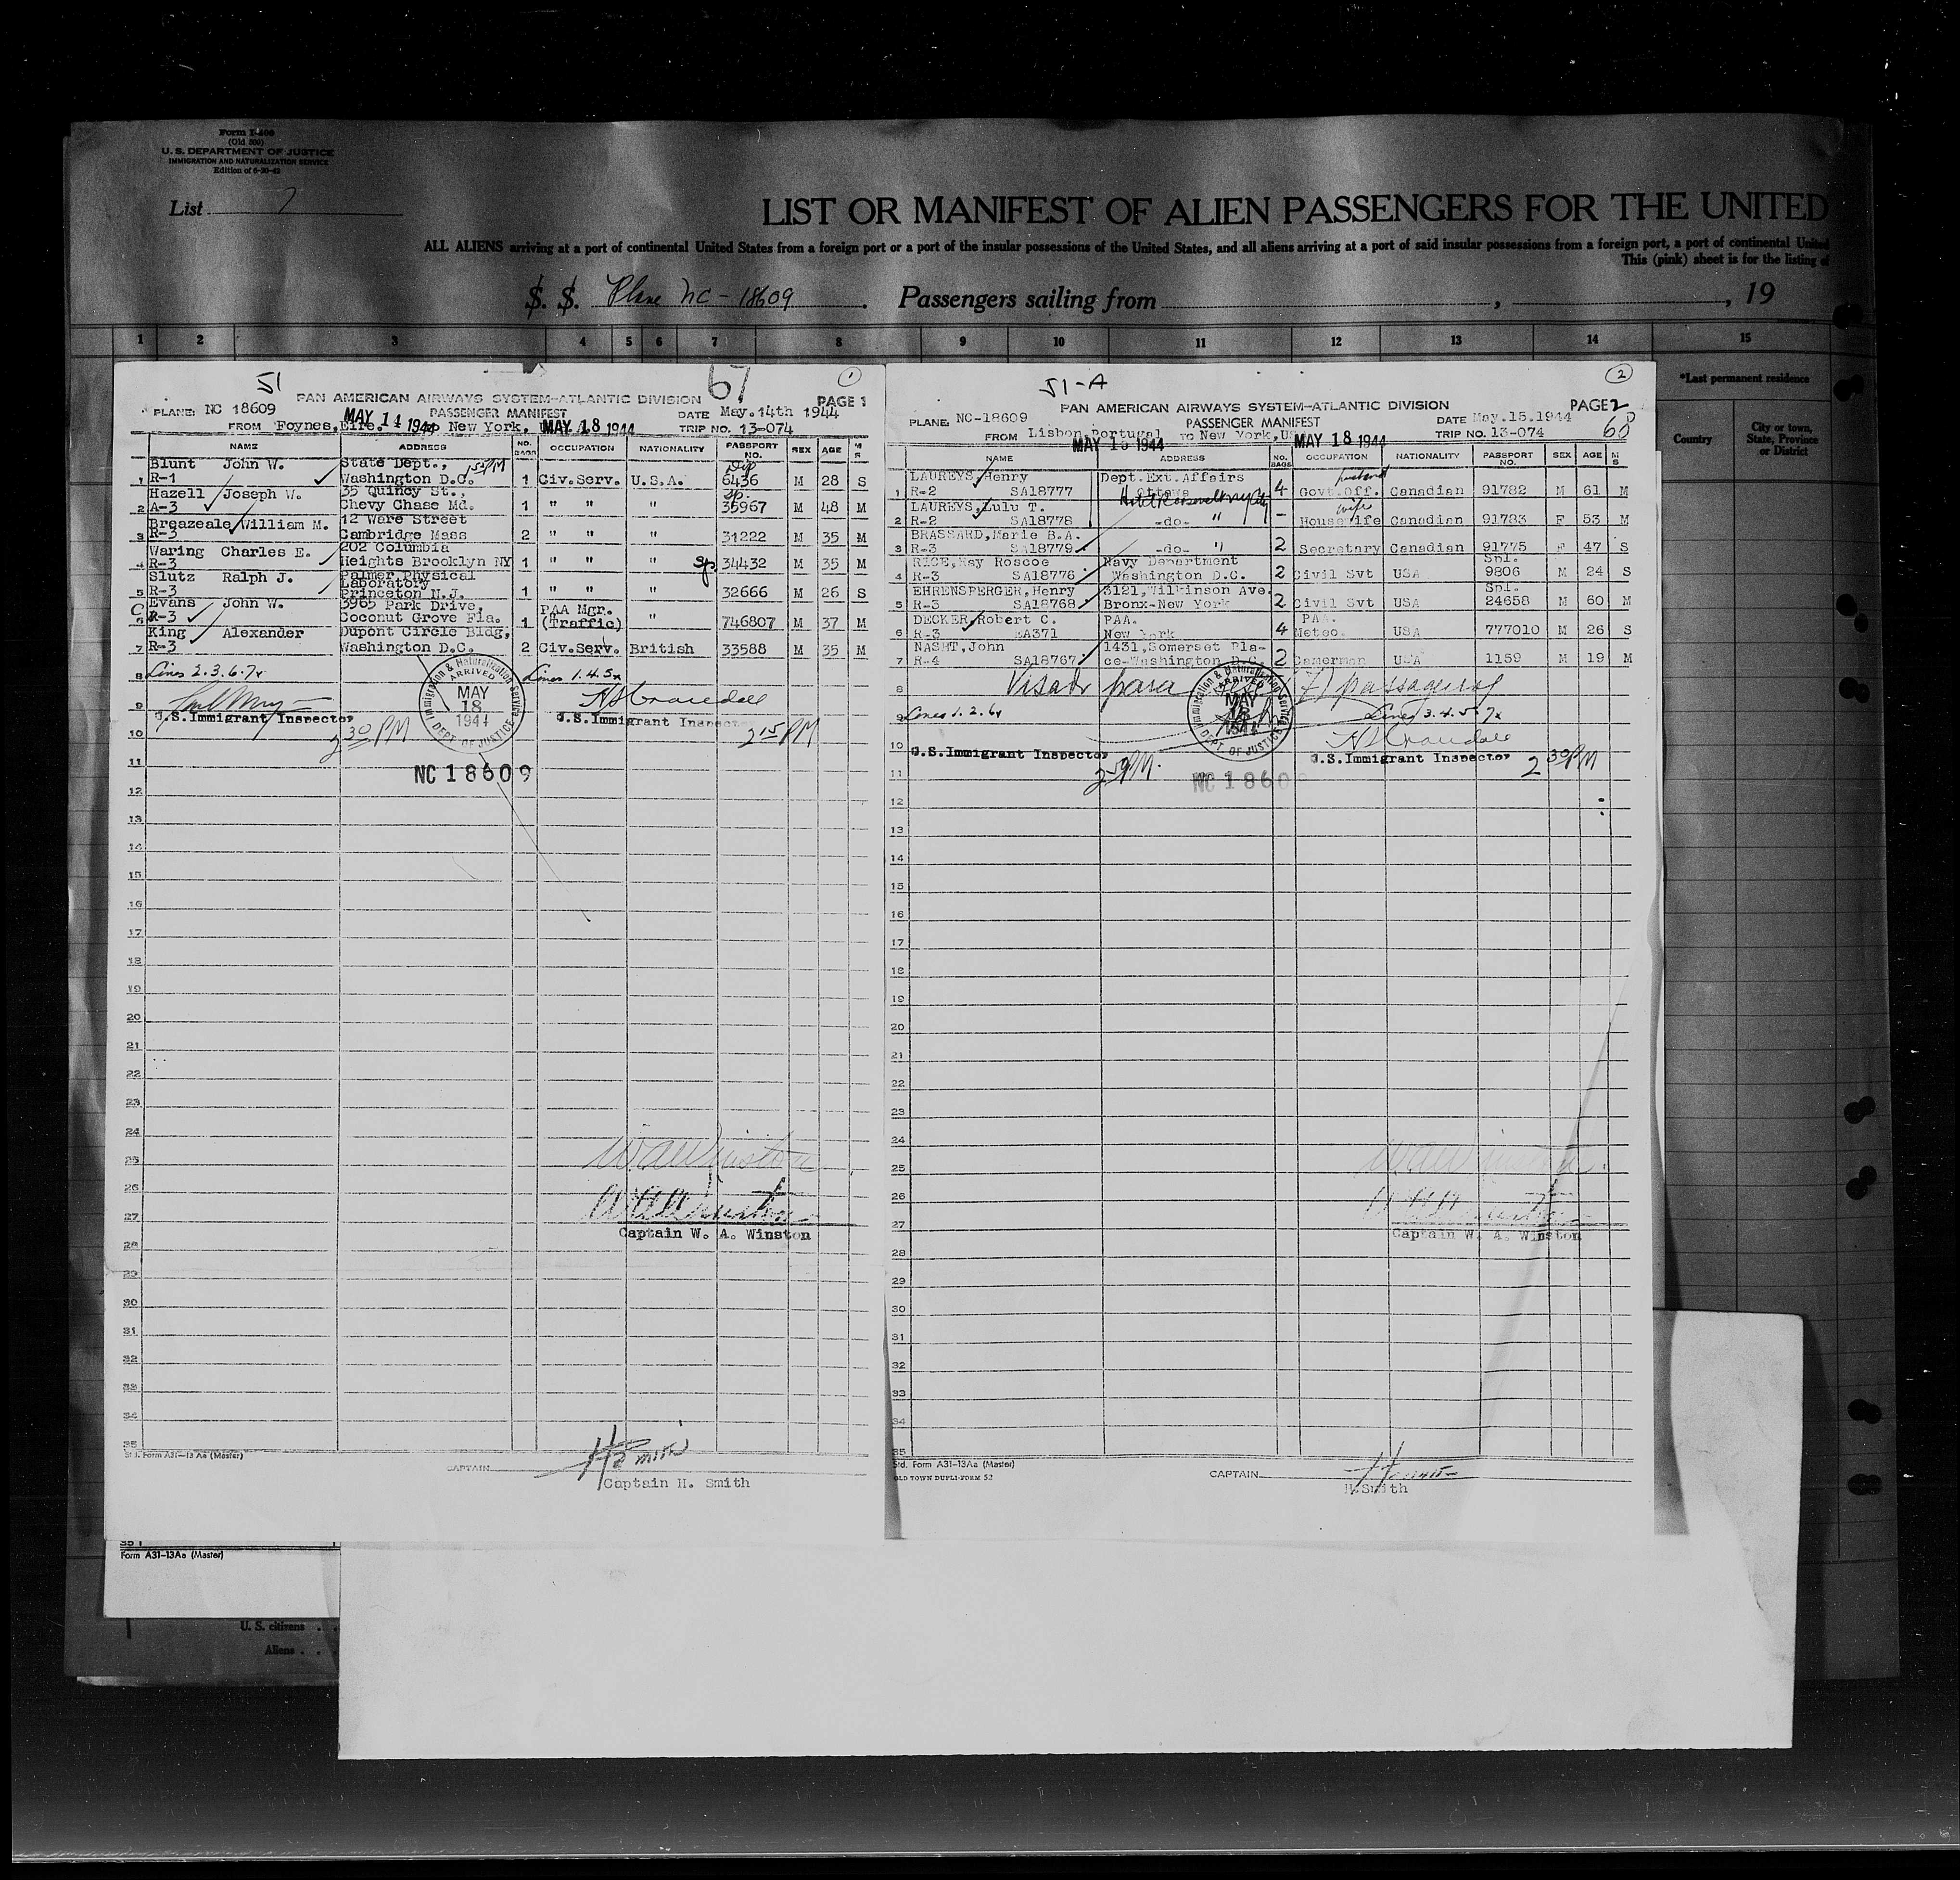 Form I-466
(Old 500)
U. S. DEPARTMENT OF JUSTICE
IMMIGRATION AND NATURALIZATION SERVICE
List 7
LIST OR MANIFEST OF ALIEN PASSENGERS FOR THE UNITED
ALL ALIENS arriving at a port of continental United States from a foreign port or a port of the insular possessions of the United States, and all aliens arriving at a port of said insular possessions from a foreign port, a port of continental United
This (pink) sheet is for the listing of
S. S. Plane NC-18609. Passengers sailing from , , 19
1 2 3 4 5 6 7 8 9 10 11 12 13 14 15
*Last permanent residence
Country
City or town, State, Province or District
51
67
1
PAN AMERICAN AIRWAYS SYSTEM-ATLANTIC DIVISION PAGE 1
PLANE: NC 18609 PASSENGER MANIFEST DATE May.14th 1944
FROM Foynes, Eire. MAY 14 1944 TO New York. MAY 18 1944 TRIP NO. 13-074
NAME ADDRESS NO. BAGS OCCUPATION NATIONALITY PASSPORT NO. SEX AGE M S
1 Blunt John W. State Dept., 1 55 PM Dip
R-1 Washington D.C. 1 Civ.Serv. U.S.A. 6436 M 28 S
2 Hazell Joseph W. 35 Quincy St., Sp.
A-3 Chevy Chase Md. 1 " " " 35967 M 48 M
3 Breazeale William M. 12 Ware Street
R-3 Cambridge Mass 2 " " " 31222 M 35 M
4 Waring Charles E. 202 Columbia
R-3 Heights Brooklyn NY 1 " " " Sp. 34432 M 35 M
5 Slutz Ralph J. Palmer Physical Laboratory
R-3 Princeton N.J. 1 " " " 32666 M 26 S
C
6 Evans John W. 3965 Park Drive, PAA Mgr.
R-3 Coconut Grove Fla. 1 (Traffic) " 746807 M 37 M
7 King Alexander Dupont Circle Bldg,
R-3 Washington D.C. 2 Civ.Serv. British 33588 M 35 M
8 Lines 2.3.6.7x Lines 1.4.5x
9 U.S.Immigrant Inspector U.S.Immigrant Inspector
10 2 30 PM 2 15 PM
Immigration & Naturalization Service
ARRIVED
MAY
18
1944
DEPT. OF JUSTICE
NC 18609
11
12
13
14
15
16
17
18
19
20
21
22
23
24
25
26
27
Captain W. A. Winston
28
29
30
31
32
33
34
35
Std. Form A31-13 Aa (Master)
CAPTAIN H Smith
Captain H. Smith
51-A
2
PAN AMERICAN AIRWAYS SYSTEM-ATLANTIC DIVISION PAGE 2
PLANE: NC-18609 PASSENGER MANIFEST DATE May.15.1944 68
FROM Lisbon, Portugal TO New York, US MAY 18 1944 TRIP NO. 13-074
NAME ADDRESS NO. BAGS OCCUPATION NATIONALITY PASSPORT NO. SEX AGE M S
1 LAUREYS, Henry Dept.Ext.Affairs husband
R-2 SA18777 Ottawa 4 Govt.Off. Canadian 91782 M 61 M
2 LAUREYS, Lulu T. wife
R-2 SA18778 -do- " - Housewife Canadian 91783 F 53 M
3 BRASSARD, Marie B.A.
R-3 SA18779 -do- " 2 Secretary Canadian 91775 F 47 S
4 RICE, Ray Roscoe Navy Department Spl.
R-3 SA18776 Washington D.C. 2 Civil Svt USA 9806 M 24 S
5 EHRENSPERGER, Henry 3121, Wilkinson Ave. Spl.
R-3 SA18768 Bronx-New York 2 Civil Svt USA 24658 M 60 M
6 DECKER, Robert C. PAA. PAA.
R-3 EA371 New York 4 Meteo. USA 777010 M 26 S
7 NASHT, John 1431, Somerset Pla-
R-4 SA18767 ce-Washington D.C. 2 Camerman USA 1159 M 19 M
8 Visado para (7) passageiros
9 Lines 1.2.6x Lines 3.4.5.7x
10 U.S.Immigrant Inspector U.S.Immigrant Inspector 2 30 PM
11
Immigration & Naturalization Service
ARRIVED
MAY
18
1944
DEPT. OF JUSTICE
NC 1860
12
13
14
15
16
17
18
19
20
21
22
23
24
25
26
27
Captain W. A. Winston
28
29
30
31
32
33
34
35
Std. Form A31-13Aa (Master)
OLD TOWN DUPLI-FORM 52
CAPTAIN
H.Smith
35
Form A31-13Aa (Master)
U. S. citizens
Aliens